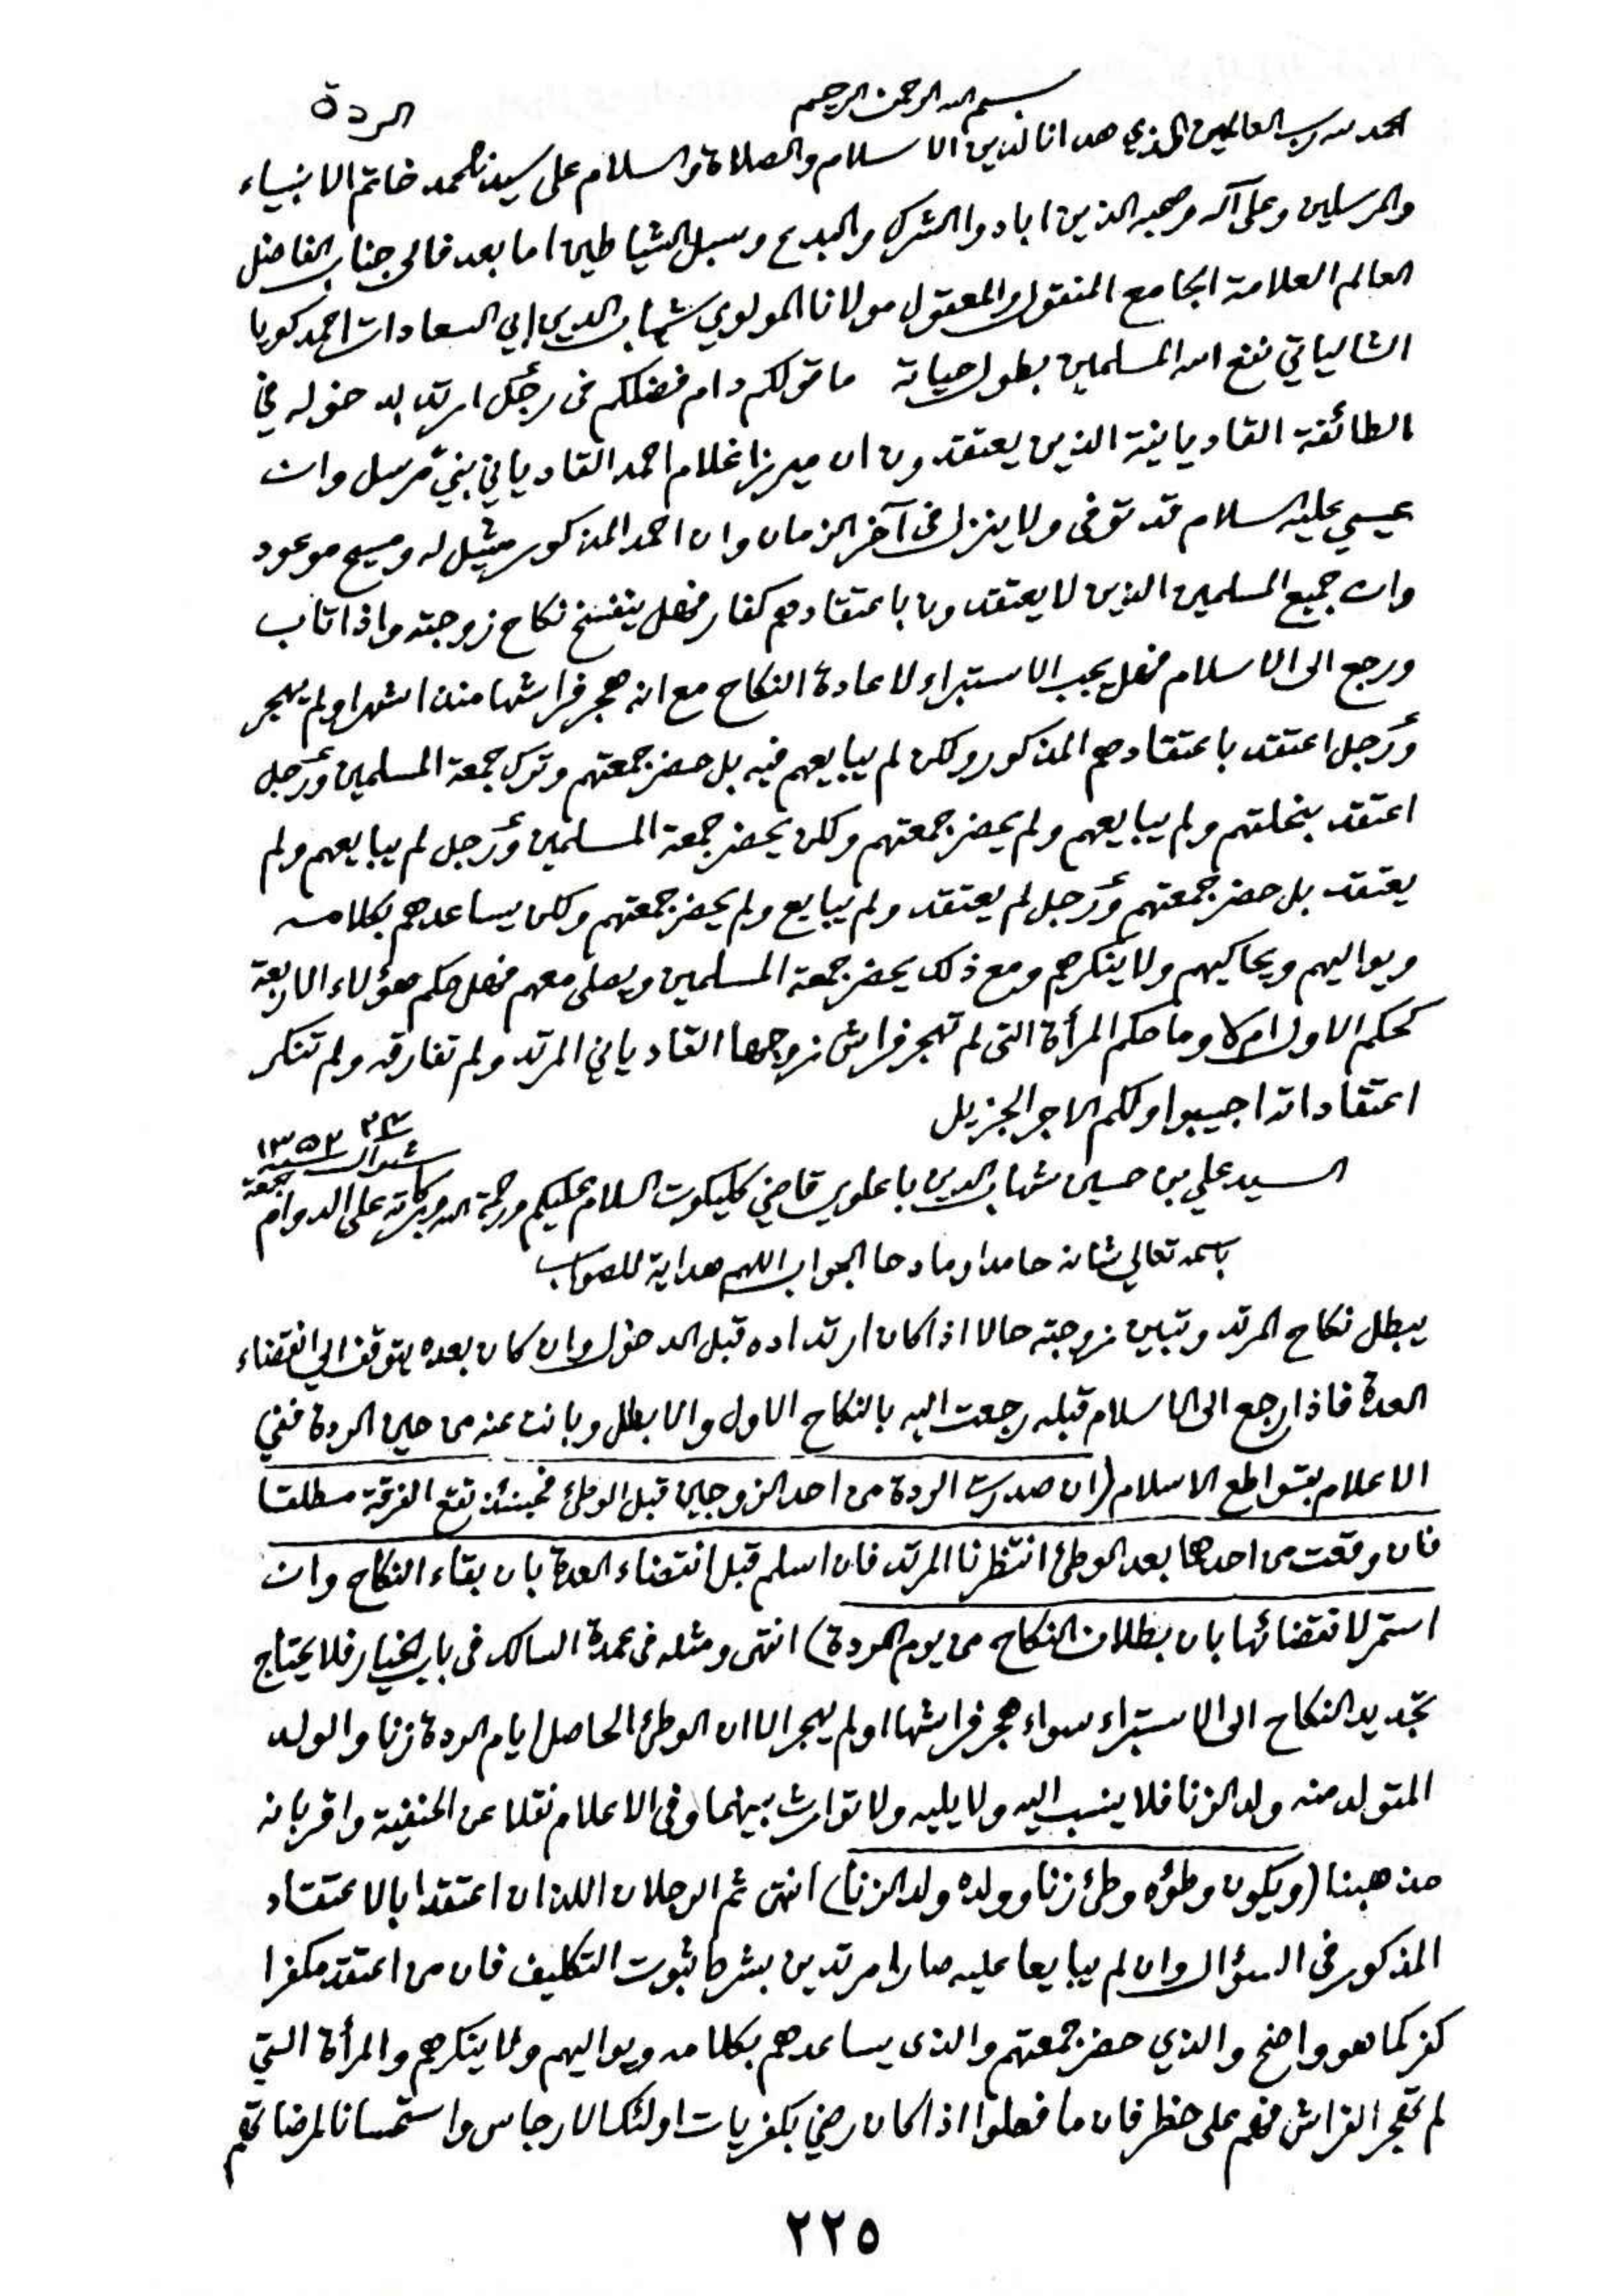 بسم الله الرحمن الرحيم
الردة
الحمد لله رب العالمين الذي هدانا لدين الاسلام والصلاة والسلام على سيدنا محمد خاتم الانبياء
والمرسلين وعلى آله وصحبه الذين ابادوا الشرك والبدع وسبل الشياطين اما بعد فالى جناب الفاضل
العالم العلامة الجامع المنقول والمعقول مولانا المولوي شهاب الدين ابي السعادات احمد كويا
الشالياتي نفع الله المسلمين بطول حياته ما قولكم دام فضلكم فى رجل ارتد بدخوله في
الطائفة القاديانية الذين يعتقدون ان ميرزا غلام احمد القادياني نبي مرسل وان
عيسى عليه السلام قد توفى ولا ينزل فى آخر الزمان وان احمد المذكور مثيل له ومسيح موعود
وان جميع المسلمين الذين لا يعتقدون باعتقادهم كفار فهل ينفسخ نكاح زوجته واذا تاب
ورجع الى الاسلام فهل يجب الاستبراء لاعادة النكاح مع انه هجر فراشها منذ اشهر او لم يهجر
ورجل اعتقد باعتقادهم المذكور ولكن لم يبايعهم فيه بل حضر جمعتهم وترك جمعة المسلمين ورجل
اعتقد بنحلتهم ولم يبايعهم ولم يحضر جمعتهم ولكن يحضر جمعة المسلمين ورجل لم يبايعهم ولم
يعتقد بل حضر جمعتهم ورجل لم يعتقد ولم يبايع ولم يحضر جمعتهم ولكن يساعدهم بكلامه
ويواليهم ويحاكيهم ولا ينكرهم ومع ذلك يحضر جمعة المسلمين ويصلى معهم فهل حكم هؤلاء الاربعة
كحكم الاول ام لا وما حكم المرأة التى لم تهجر فراش زوجها القادياني المرتد ولم تفارقه ولم تنكر
اعتقاداته اجيبوا ولكم الاجر الجزيل
شوال سنة ١٣٥٢
جمعة
السيد علي بن حسين شهاب الدين باعلوي قاضي كليكوت السلام عليكم ورحمة الله وبركاته على الدوام
باسمه تعالى شانه حامدا ومادحا الجواب اللهم هداية للصواب
يبطل نكاح المرتد وتبين زوجته حالا اذا كان ارتداده قبل الدخول وان كان بعده يتوقف الى انقضاء
العدة فاذا رجع الى الاسلام قبله رجعت اليه بالنكاح الاول والا بطل وبانت عنه من حين الردة ففي
الاعلام بقواطع الاسلام (ان صدرت الردة من احد الزوجين قبل الوطئ فحينئذ تقع الفرقة مطلقا
فان وقعت من احدهما بعد الوطئ انتظرنا المرتد فان اسلم قبل انقضاء العدة بان بقاء النكاح وان
استمر لانقضائها بان بطلان النكاح من يوم الردة) انتهى ومثله فى عمدة السالك فى باب الخيار فلا يحتاج
تجديد النكاح الى الاستبراء سواء هجر فراشها او لم يهجر الا ان الوطئ الحاصل ايام الردة زنا والولد
المتولد منه ولد الزنا فلا ينسب اليه ولا يليه ولا توارث بينهما وفى الاعلام نقلا عن الحنفية واقر بانه
مذهبنا (ويكون وطؤه وطئ زنا وولده ولد الزنا) انتهى ثم الرجلان اللذان اعتقدا بالاعتقاد
المذكور في السؤال وان لم يبايعا عليه صارا مرتدين بشرط ثبوت التكليف فان من اعتقد مكفرا
كفر كما هو واضح والذي حضر جمعتهم والذى يساعدهم بكلامه ويواليهم ولا ينكرهم والمرأة التي
لم تهجر الفراش فهم على خطر فان ما فعلوا اذا كان رضي بكفريات اولئك الارجاس واستحسانا
٢٢٥